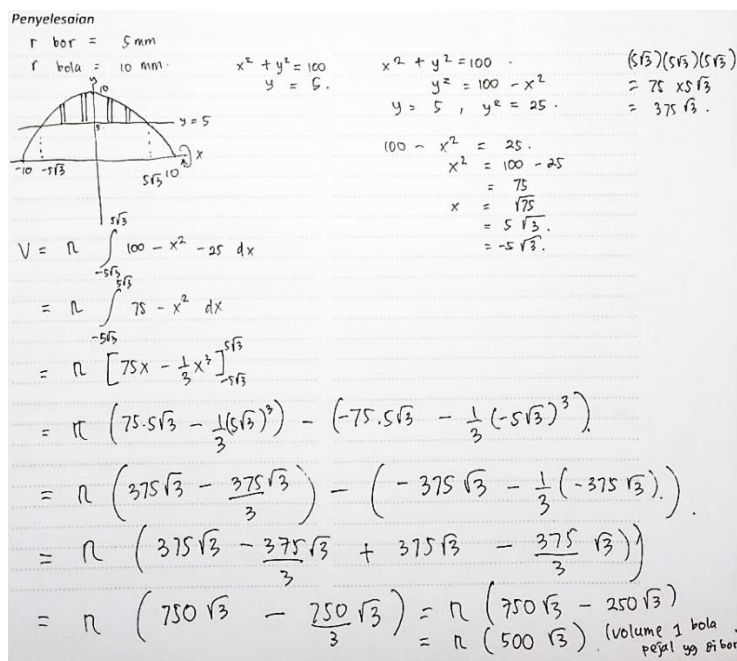 Penyelesaian
r bor = 5 mm
r bola = 10 mm.
x² + y² = 100
y = 5.
x² + y² = 100.
y² = 100 - x²
y = 5, y² = 25.
100 - x² = 25.
x² = 100 - 25
= 75
x = √75
= 5√3.
= -5√3.
(5√3)(5√3)(5√3)
= 75 x5√3
= 375√3.
y
10
y = 5
5
x
-10 -5√3 5√3 10
V = π ∫_{-5√3}^{5√3} 100 - x² - 25 dx
= π ∫_{-5√3}^{5√3} 75 - x² dx
= π [75x - 1/3 x³]_{-5√3}^{5√3}
= π (75.5√3 - 1/3(5√3)³) - (-75.5√3 - 1/3(-5√3)³)
= π (375√3 - 375√3/3) - (-375√3 - 1/3(-375√3).).
= π (375√3 - 375/3 √3 + 375√3 - 375/3 √3))
= π (750√3 - 750/3 √3) = π (750√3 - 250√3)
= π (500√3). (volume 1 bola pejal yg dibor